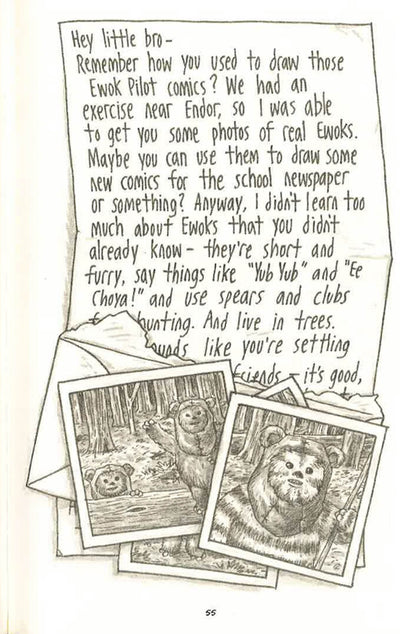 Hey little bro-
Remember how you used to draw those
Ewok Pilot comics? We had an
exercise near Endor, so I was able
to get you some photos of real Ewoks.
Maybe you can use them to draw some
new comics for the school newspaper
or something? Anyway, I didn't learn too
much about Ewoks that you didn't
already know - they're short and
furry, say things like "Yub Yub" and "Ee
Choya!" and use spears and clubs
hunting. And live in trees.
like you're settling
- it's good,
55